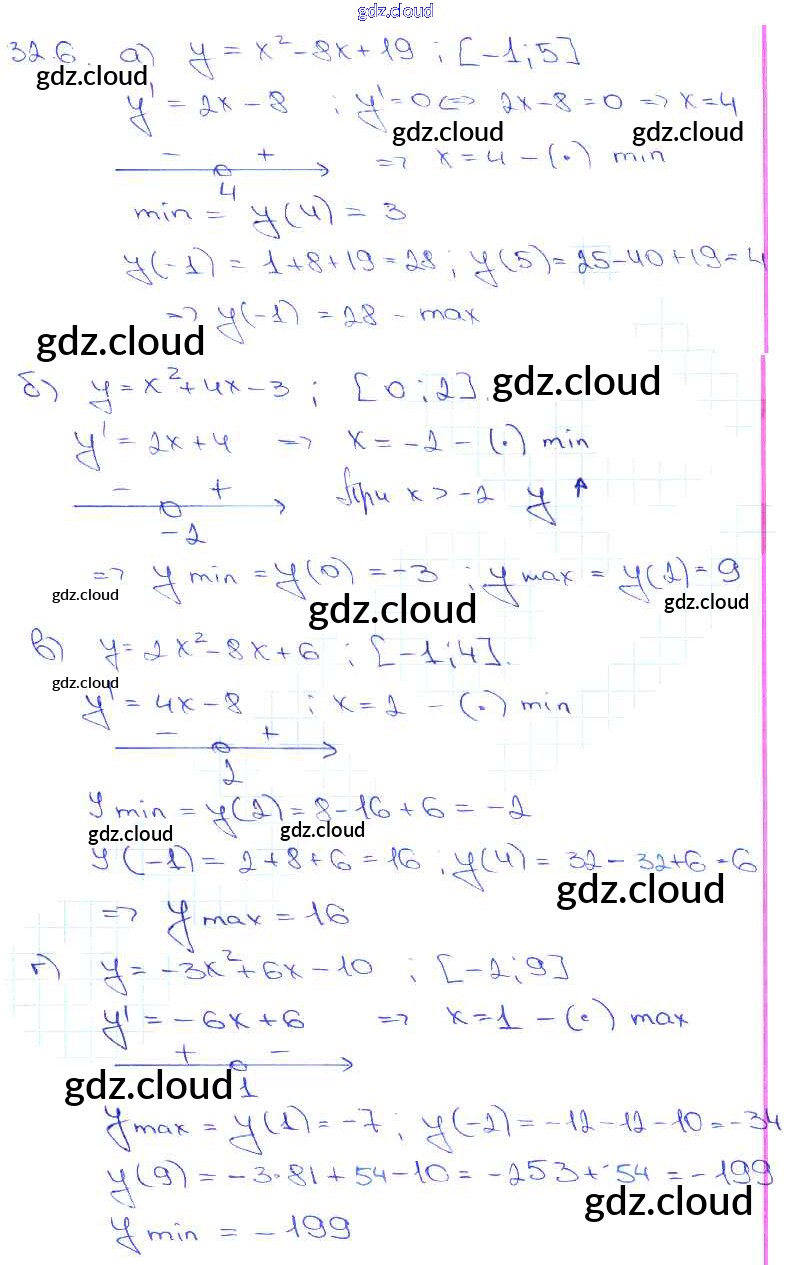 gdz.cloud
32.6. а) y = x² - 8x + 19 ; [-1;5]
gdz.cloud
y' = 2x - 8 ; y' = 0 <=> 2x - 8 = 0 => x = 4
gdz.cloud gdz.cloud
- + => x = 4 - (·) min
4
min = y(4) = 3
y(-1) = 1+8+19 = 28 ; y(5) = 25-40+19 = 4
=> y(-1) = 28 - max
gdz.cloud
б) y = x² + 4x - 3 ; [0;2].
gdz.cloud
y' = 2x + 4 => x = -2 - (·) min
- + При x > -2 y ↑
-2
=> y min = y(0) = -3 ; y max = y(2) = 9
gdz.cloud gdz.cloud gdz.cloud
в) y = 2x² - 8x + 6 ; [-1;4].
gdz.cloud
y' = 4x - 8 ; x = 2 - (·) min
- +
2
y min = y(2) = 8 - 16 + 6 = -2
gdz.cloud gdz.cloud
y(-1) = 2 + 8 + 6 = 16 ; y(4) = 32 - 32 + 6 = 6
gdz.cloud
=> y max = 16
г) y = -3x² + 6x - 10 ; [-2;9]
y' = -6x + 6 => x = 1 - (·) max
+ -
gdz.cloud 1
y max = y(1) = -7 ; y(-2) = -12-12-10 = -34
y(9) = -3·81 + 54 - 10 = -253 + 54 = -199
gdz.cloud
y min = -199